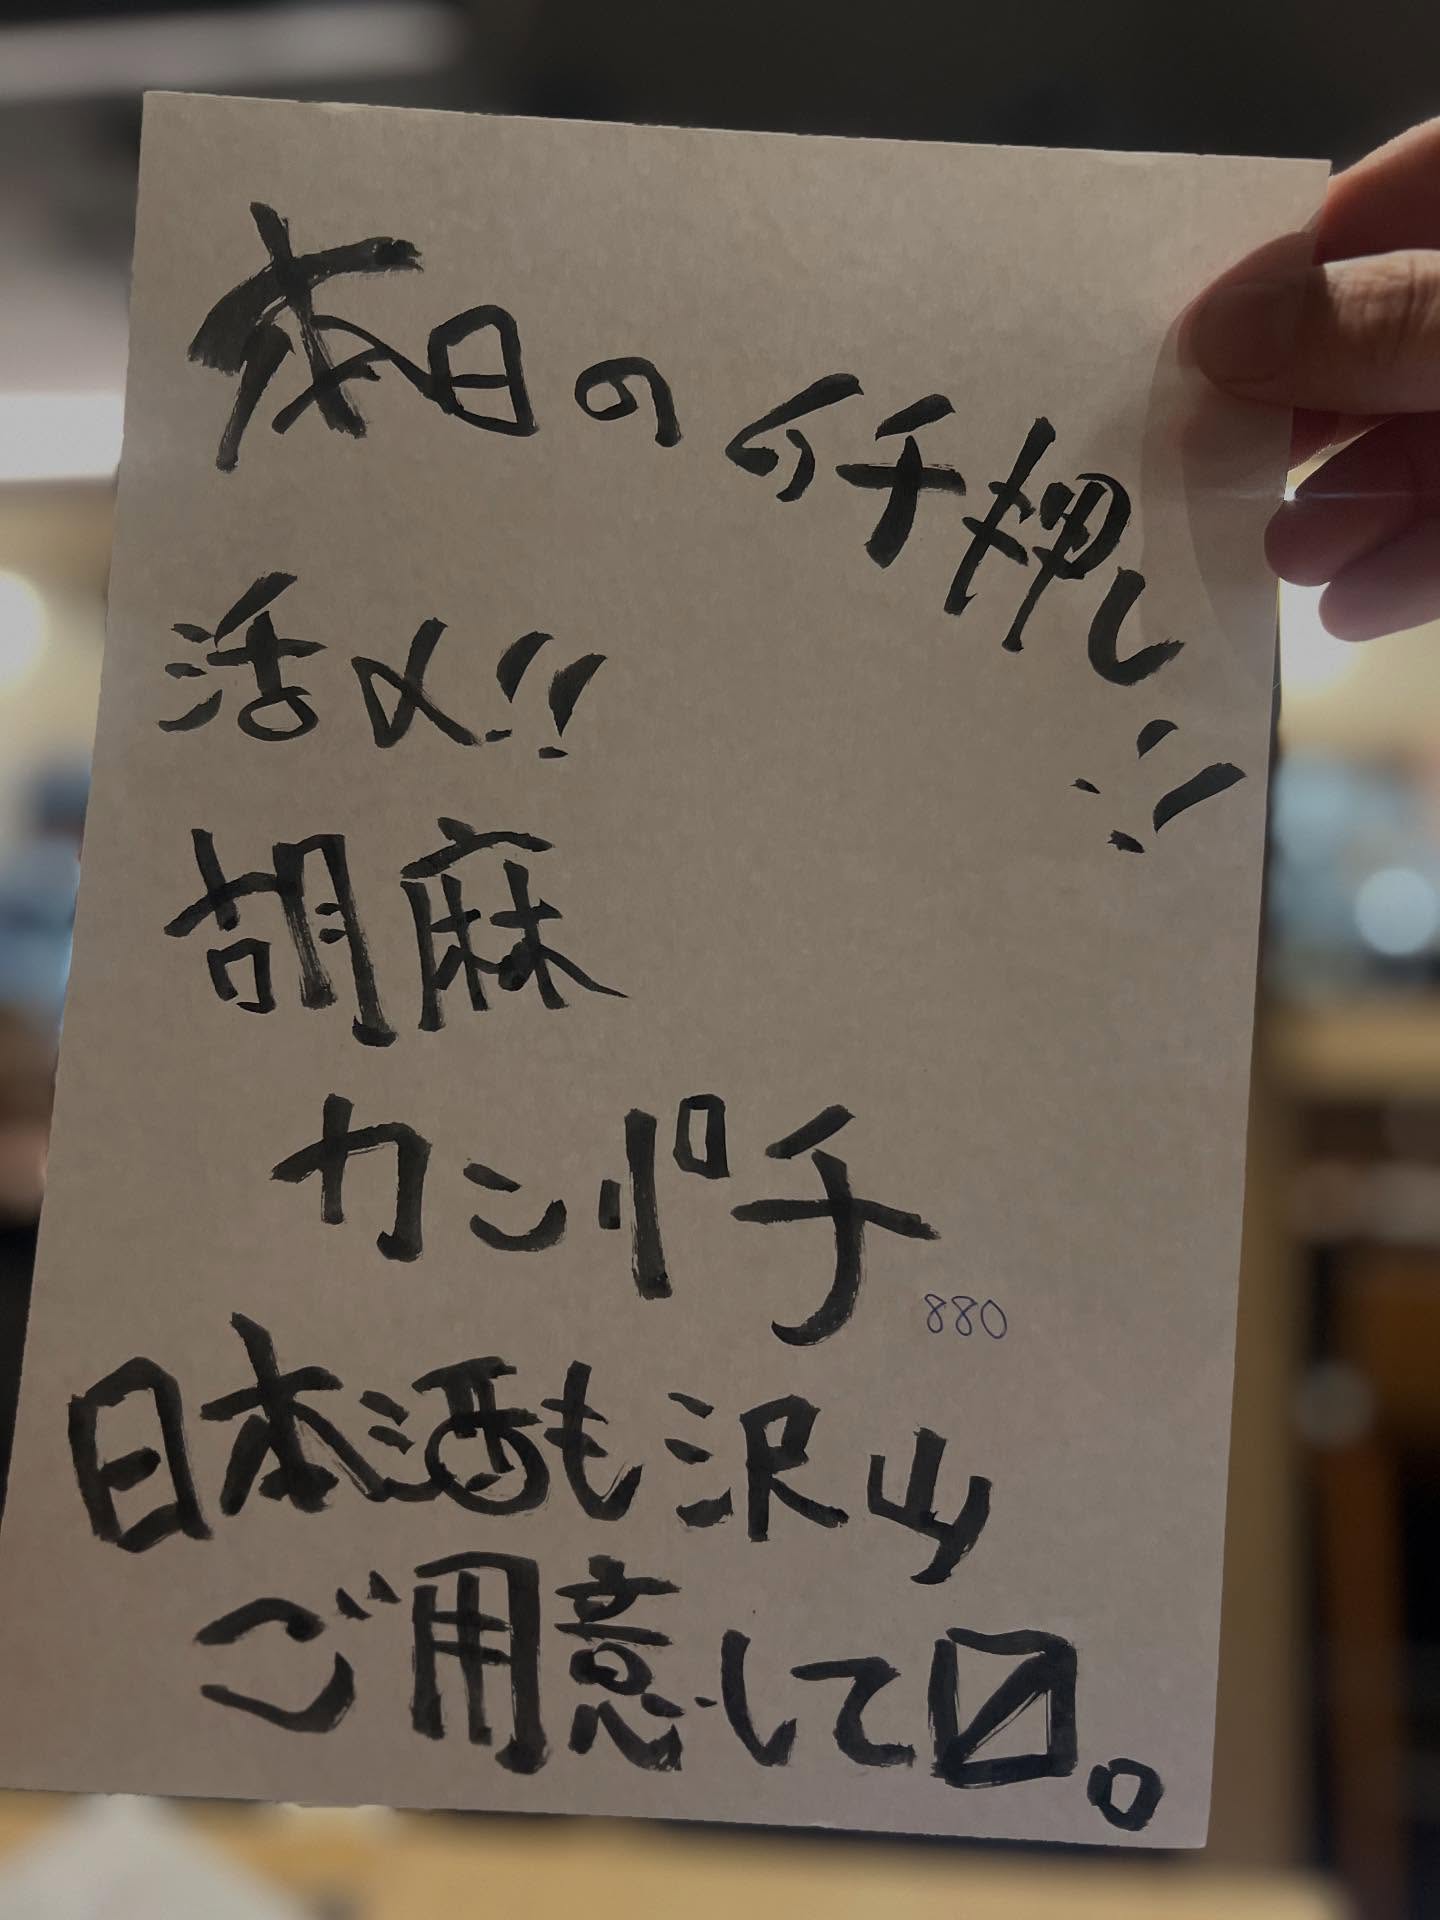 本日のイチ押し!!
活〆!!
胡麻
カンパチ
880
日本酒も沢山
ご用意して〼。